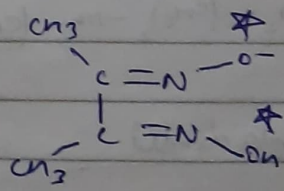 CH3
C =N — O-
C =N OH
CH3